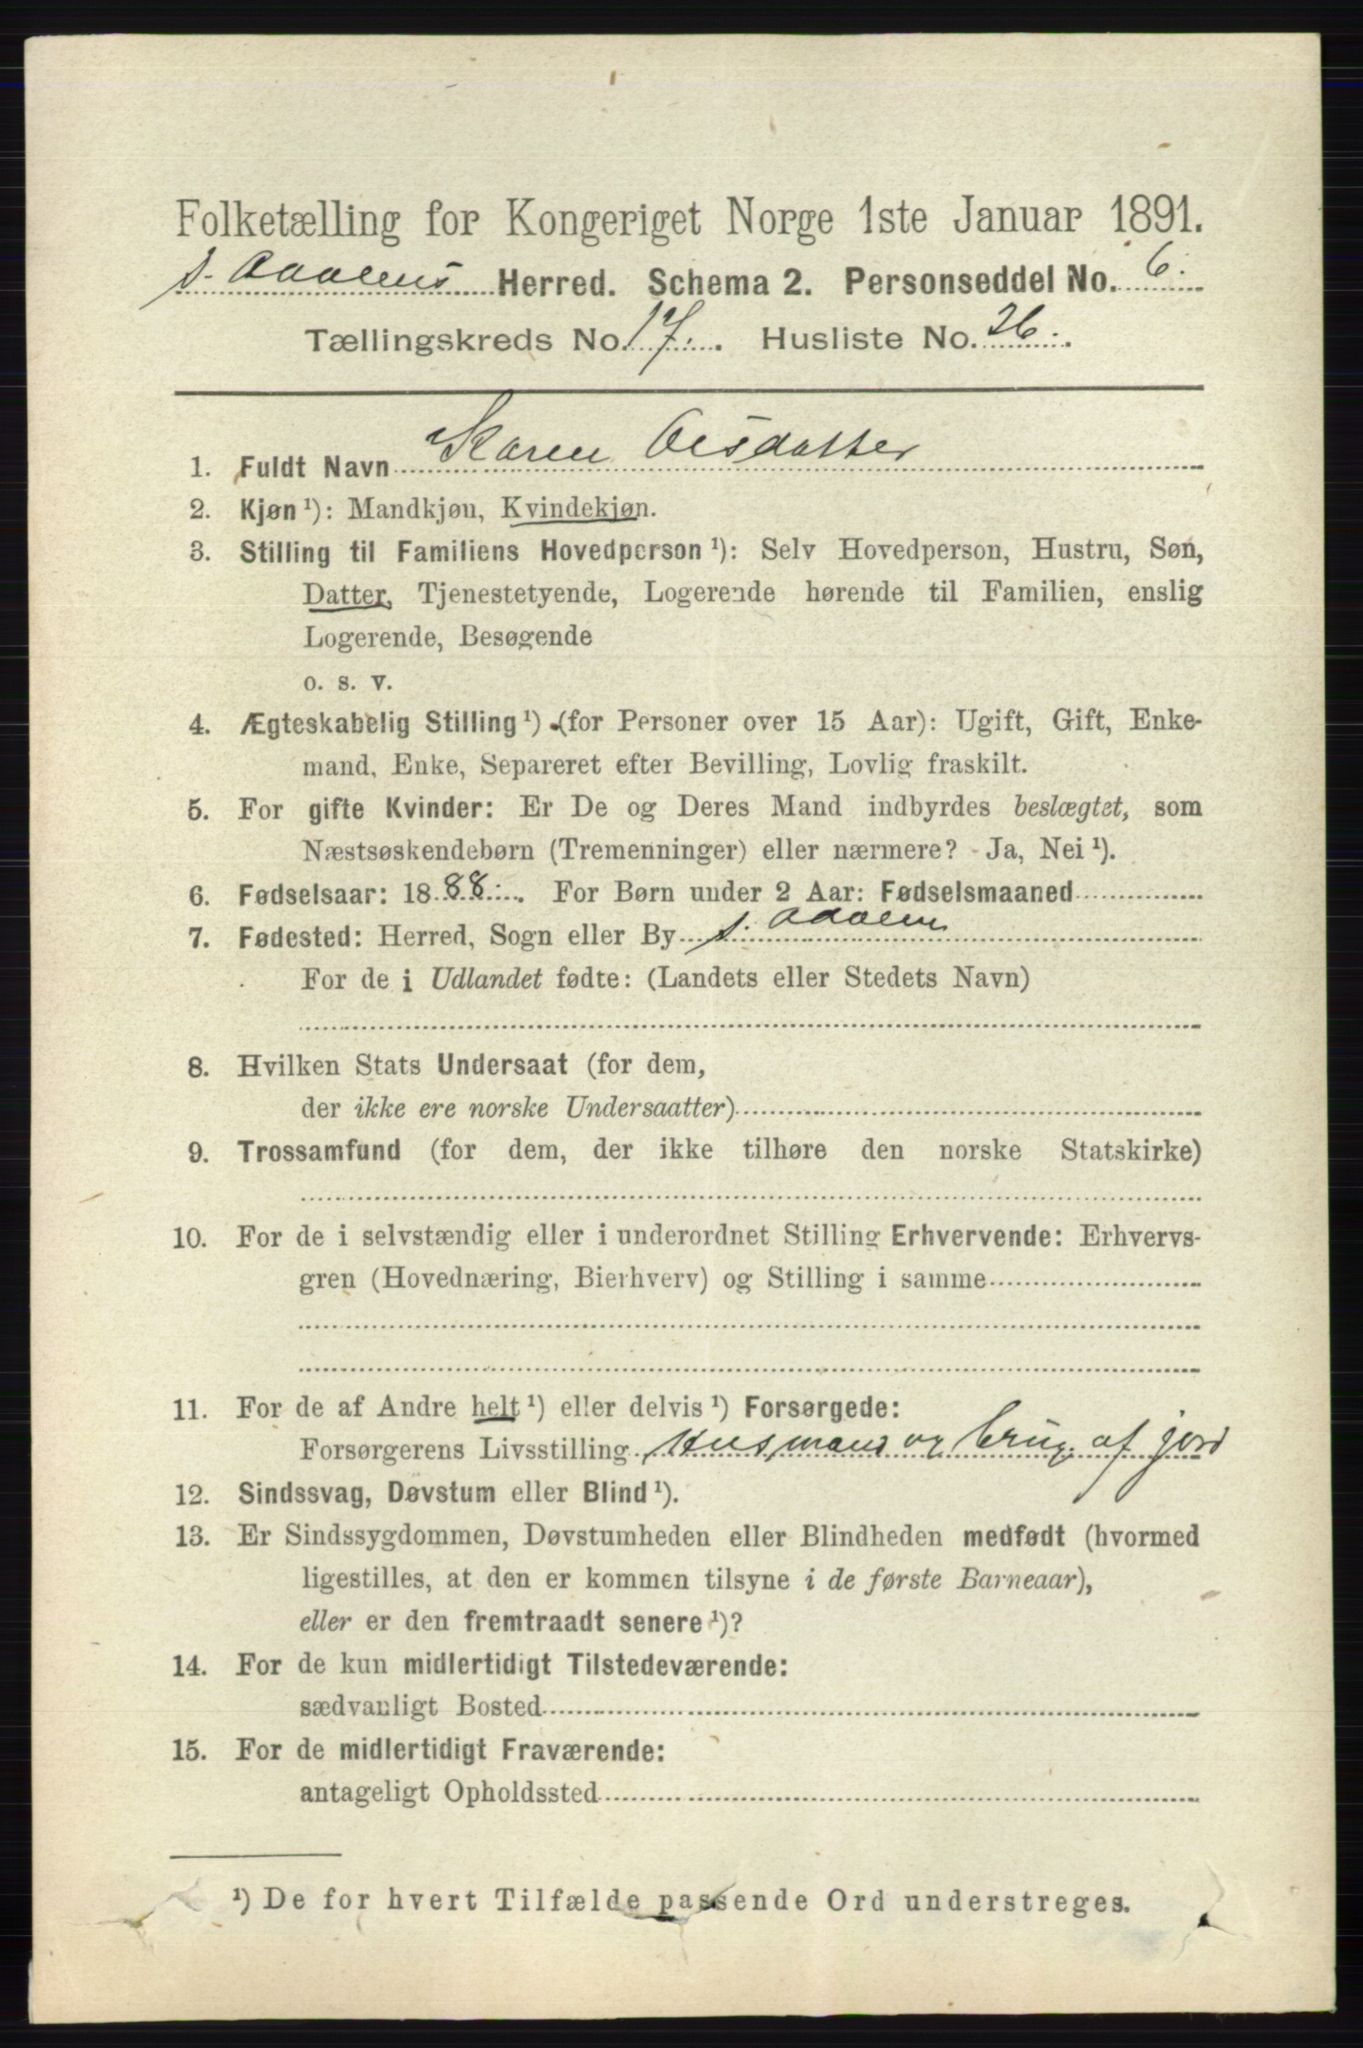 Folketælling for Kongeriget Norge 1ste Januar 1891.
S. Aadalens Herred. Schema 2. Personseddel No. 6.
Tællingskreds No. 17. Husliste No. 26.
1. Fuldt Navn Karen Olsdatter
2. Kjøn ¹): Mandkjøn, Kvindekjøn.
3. Stilling til Familiens Hovedperson ¹): Selv Hovedperson, Hustru, Søn,
Datter, Tjenestetyende, Logerende hørende til Familien, enslig
Logerende, Besøgende
o. s. v.
4. Ægteskabelig Stilling ¹) (for Personer over 15 Aar): Ugift, Gift, Enke-
mand, Enke, Separeret efter Bevilling, Lovlig fraskilt.
5. For gifte Kvinder: Er De og Deres Mand indbyrdes beslægtet, som
Næstsøskendebørn (Tremenninger) eller nærmere? - Ja, Nei ¹).
6. Fødselsaar: 1888. For Børn under 2 Aar: Fødselsmaaned
7. Fødested: Herred, Sogn eller By S. Aadalen
For de i Udlandet fødte: (Landets eller Stedets Navn)
8. Hvilken Stats Undersaat (for dem,
der ikke ere norske Undersaatter)
9. Trossamfund (for dem, der ikke tilhøre den norske Statskirke)
10. For de i selvstændig eller i underordnet Stilling Erhvervende: Erhvervs-
gren (Hovednæring, Bierhverv) og Stilling i samme
11. For de af Andre helt ¹) eller delvis ¹) Forsørgede:
Forsørgerens Livsstilling Husmand og brug. af jord
12. Sindssvag, Døvstum eller Blind ¹).
13. Er Sindssygdommen, Døvstumheden eller Blindheden medfødt (hvormed
ligestilles, at den er kommen tilsyne i de første Barneaar),
eller er den fremtraadt senere ¹)?
14. For de kun midlertidigt Tilstedeværende:
sædvanligt Bosted
15. For de midlertidigt Fraværende:
antageligt Opholdssted
¹) De for hvert Tilfælde passende Ord understreges.